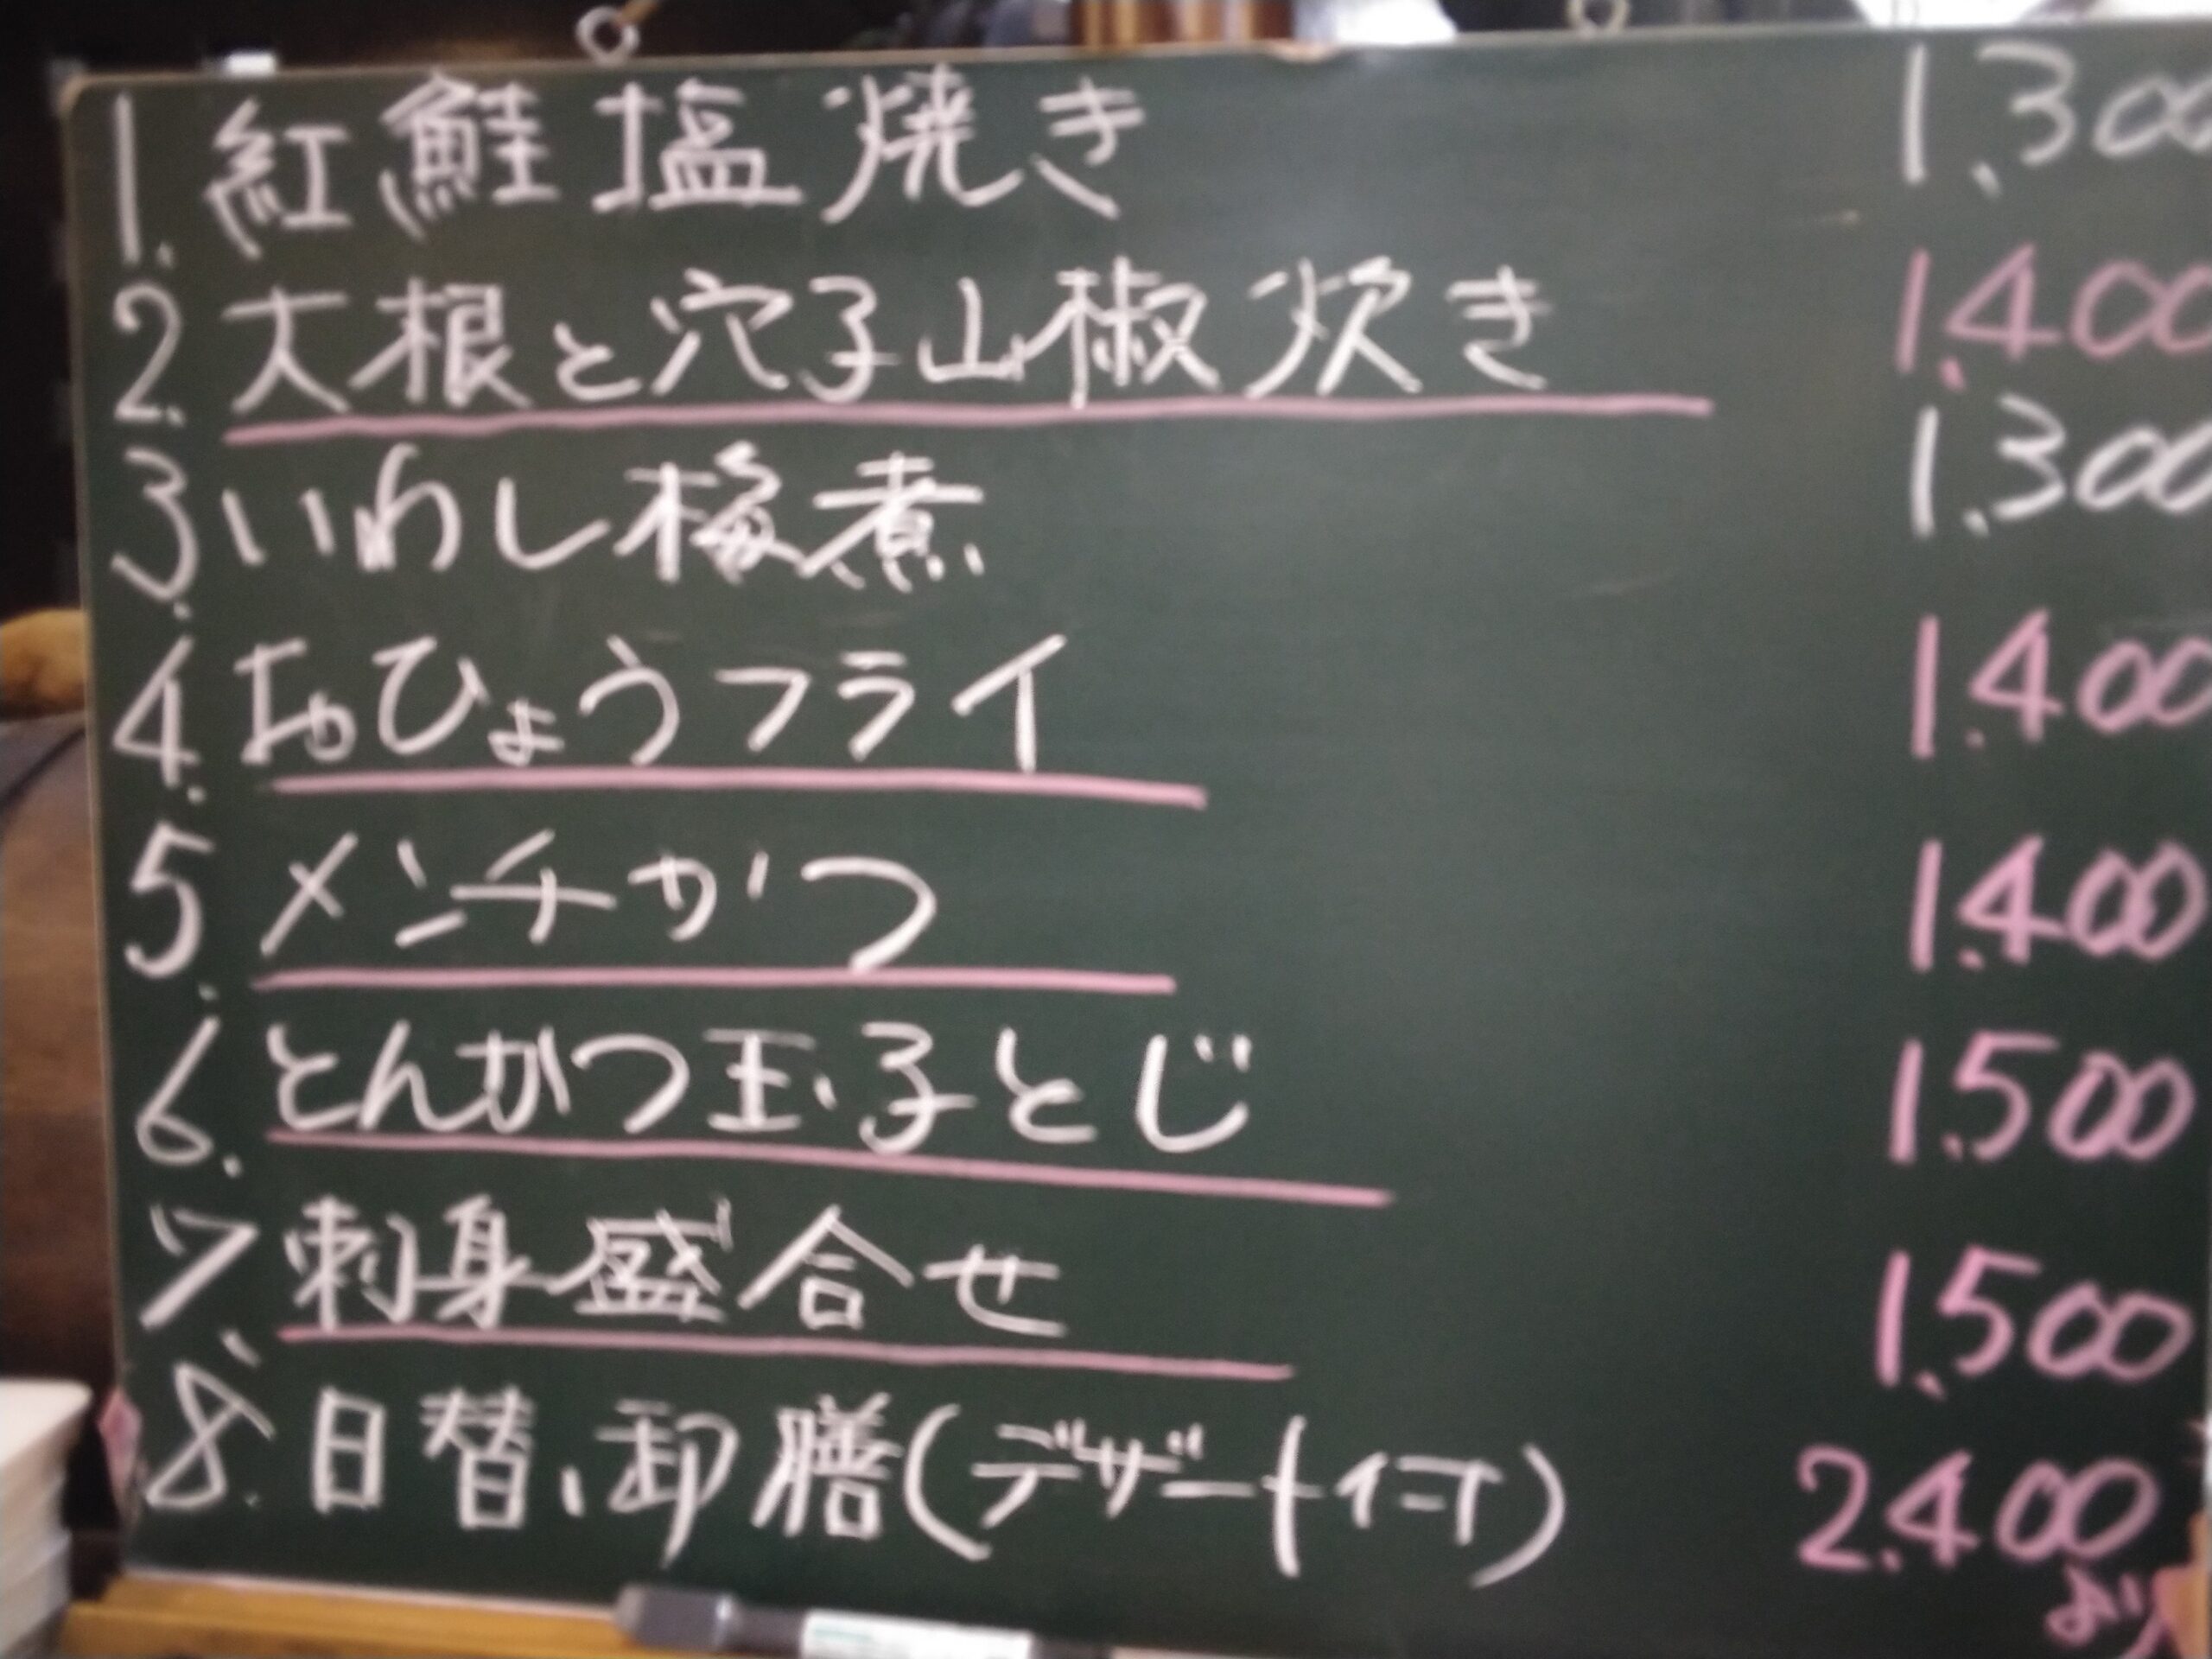 1. 紅鮭塩焼き 1.300
2. 大根と穴子山椒炊き 1.400
3. いわし梅煮 1.300
4. おひょうフライ 1.400
5. メンチかつ 1.400
6. とんかつ玉子とじ 1.500
7. 刺身盛合せ 1.500
8. 日替り御膳(デザート付) 2.400
より